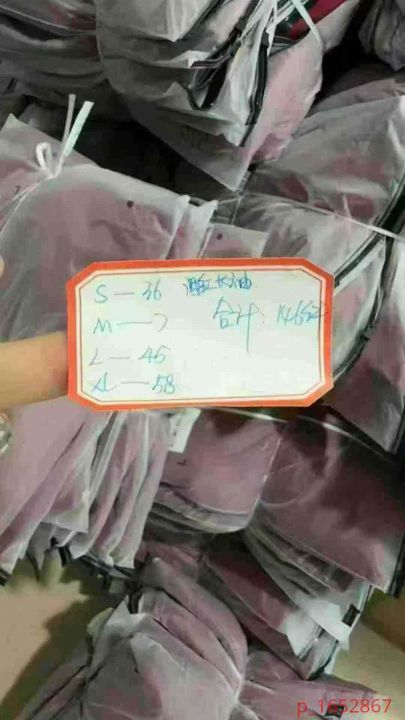 S — 36 酒红长袖
M — 7 合计: 146
L — 45
XL — 58
p_1652867